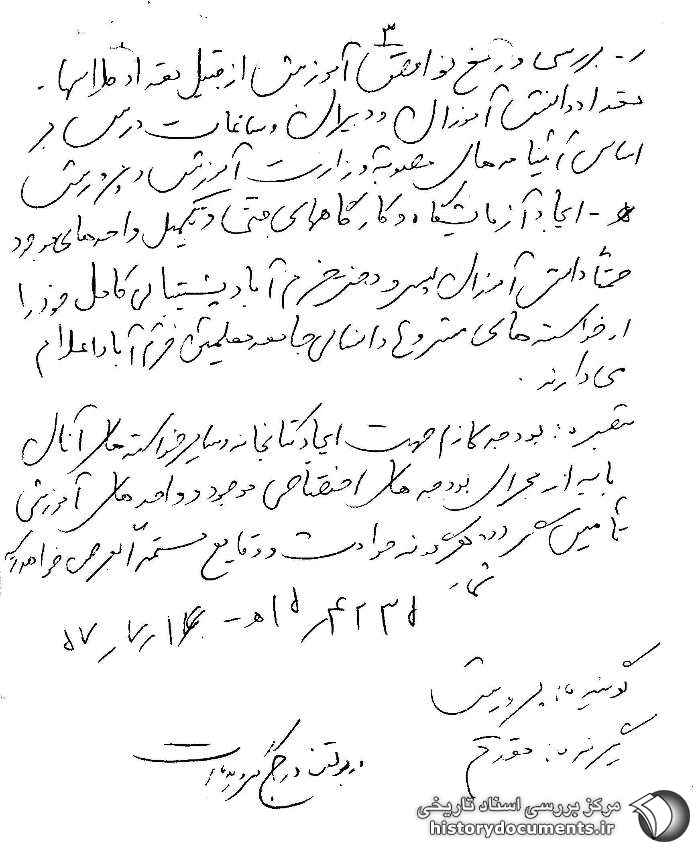 ۳
ر- بررسی و رفع نواقص آموزشی از قبیل تعداد کلاسها-
تعداد دانش آموزان و دبیران و ساعات درس بر
اساس آئینامه های مصوبه وزارت آموزش و پرورش
- ایجاد آزمایشگاه و کارگاههای فنی و تکمیل واحدهای موجود
ضمناً دانش آموزان پسر و دختر خرم آباد پشتیبانی کامل خود را
از خواسته های مشروع و انسانی جامعه معلمین خرم آباد اعلام
می دارند.
تبصره: بودجه لازم جهت ایجاد کتابخانه و سایر خواسته های آنان
باید از مجرای بودجه های اختصاصی موجود در واحدهای آموزشی
تأمین شود هرگونه حوادث و وقایع مستمراً بعرض خواهد رسید
۱۴ر۷ر۵۷
گوینده: پرورش
گیرنده:
در بولتن درج گردیده است
مرکز بررسی اسناد تاریخی
historydocuments.ir